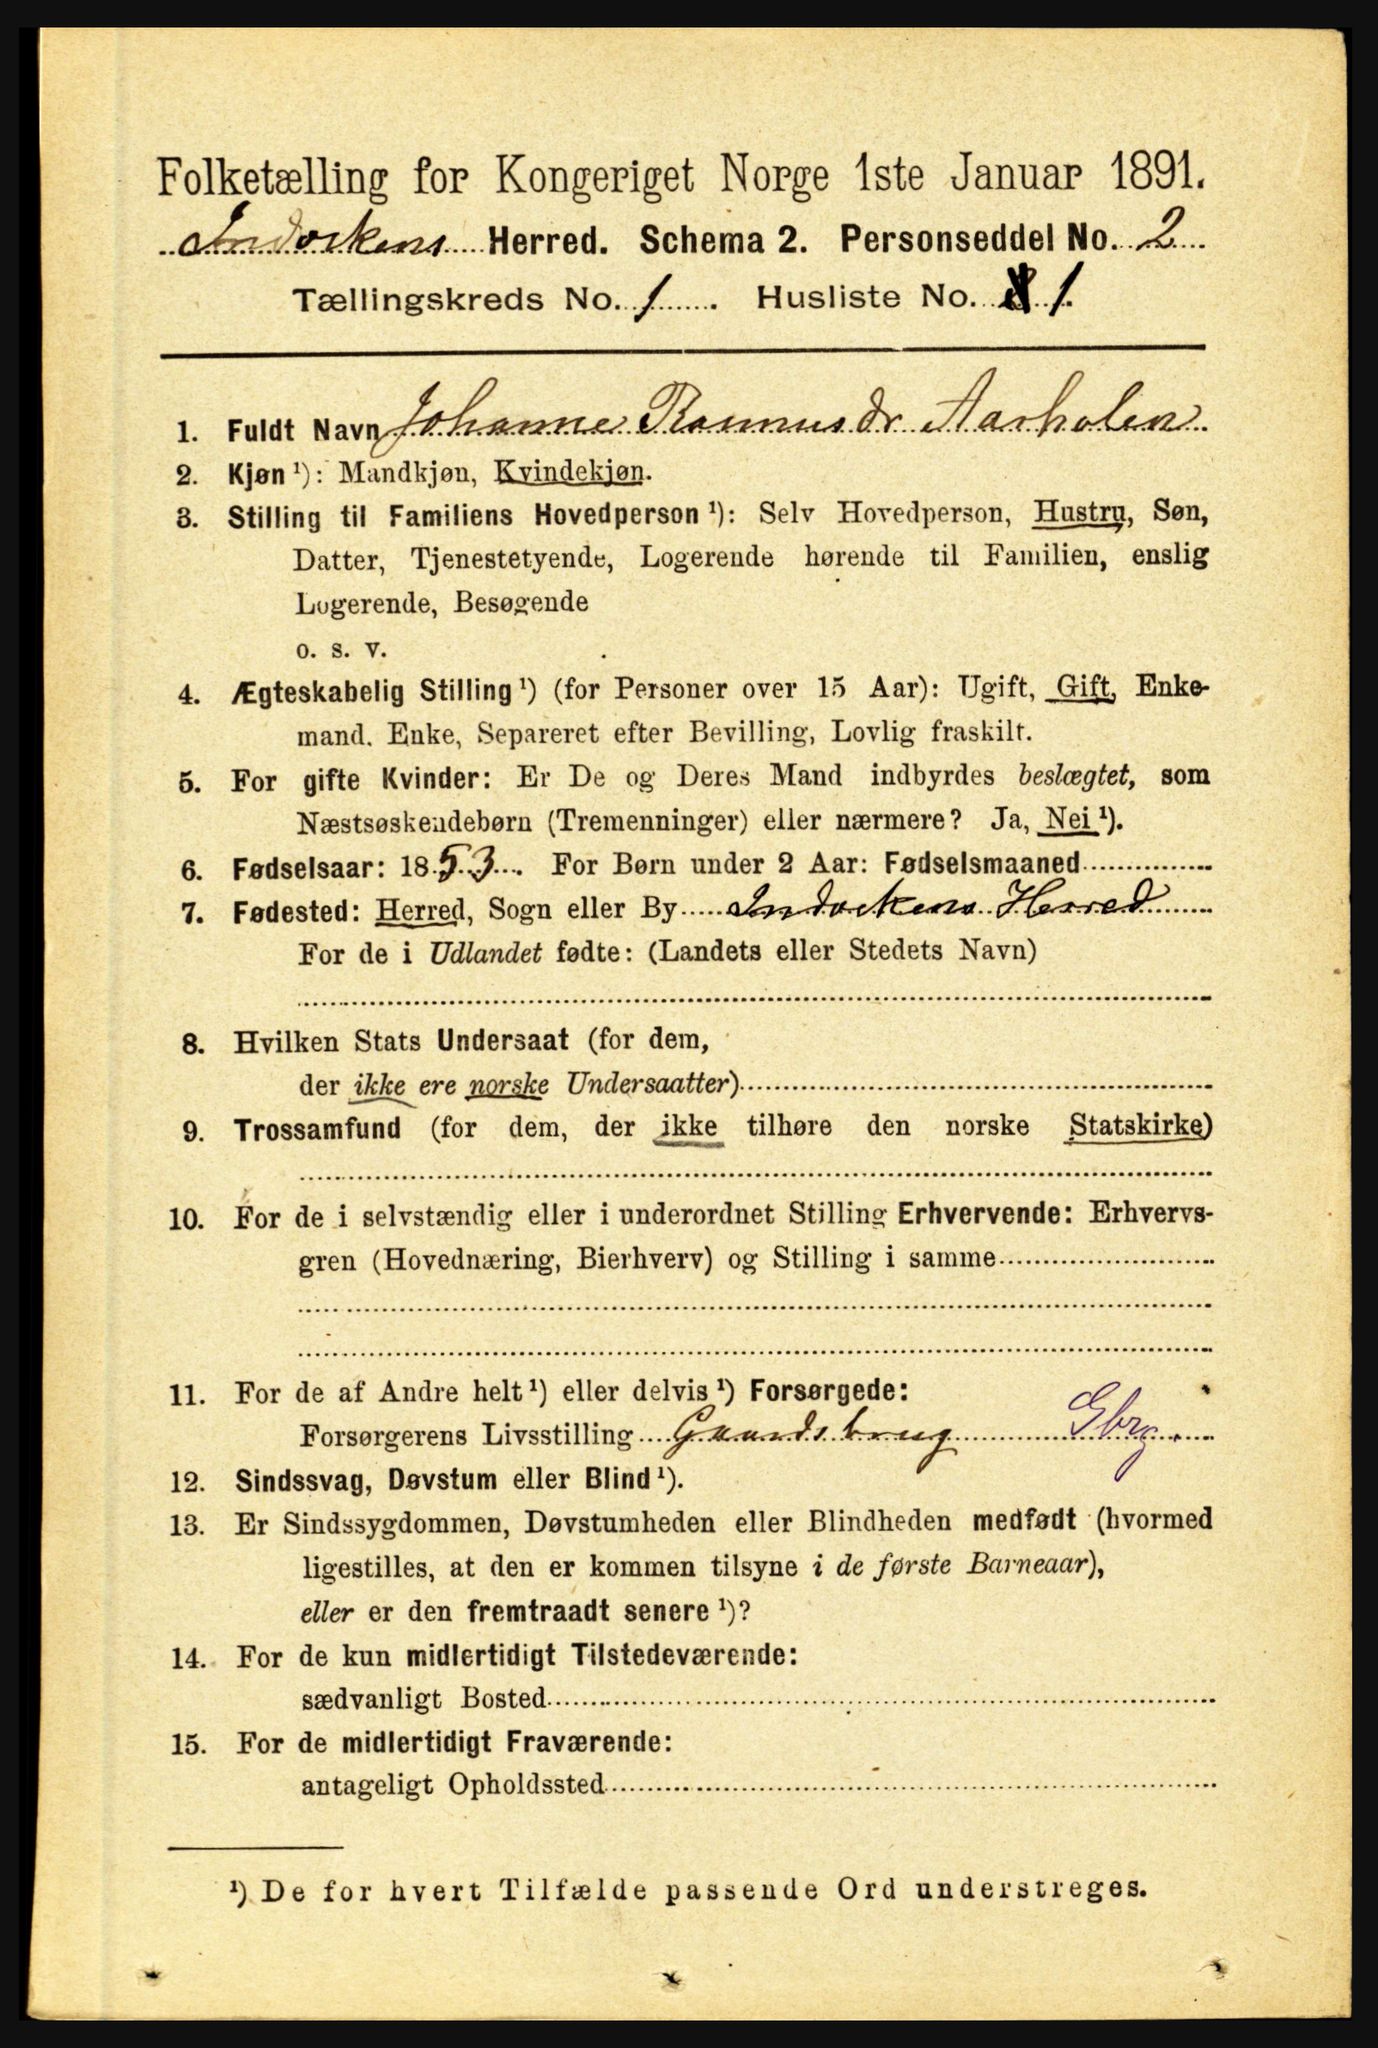 Folketælling for Kongeriget Norge 1ste Januar 1891.
Indvikens Herred. Schema 2. Personseddel No. 2
Tællingskreds No. 1. Husliste No. 1
1. Fuldt Navn Johanne Rasmusdr Aarholen
2. Kjøn ¹): Mandkjøn, Kvindekjøn.
3. Stilling til Familiens Hovedperson ¹): Selv Hovedperson, Hustru, Søn,
Datter, Tjenestetyende, Logerende hørende til Familien, enslig
Logerende, Besøgende
o. s. v.
4. Ægteskabelig Stilling ¹) (for Personer over 15 Aar): Ugift, Gift, Enke-
mand, Enke, Separeret efter Bevilling, Lovlig fraskilt.
5. For gifte Kvinder: Er De og Deres Mand indbyrdes beslægtet, som
Næstsøskendebørn (Tremenninger) eller nærmere? Ja, Nei ¹).
6. Fødselsaar: 1853. For Børn under 2 Aar: Fødselsmaaned
7. Fødested: Herred, Sogn eller By Indvikens Herred
For de i Udlandet fødte: (Landets eller Stedets Navn)
8. Hvilken Stats Undersaat (for dem,
der ikke ere norske Undersaatter)
9. Trossamfund (for dem, der ikke tilhøre den norske Statskirke)
10. For de i selvstændig eller i underordnet Stilling Erhvervende: Erhvervs-
gren (Hovednæring, Bierhverv) og Stilling i samme
11. For de af Andre helt ¹) eller delvis ¹) Forsørgede:
Forsørgerens Livsstilling Gaardsbrug Gbrg.
12. Sindssvag, Døvstum eller Blind ¹).
13. Er Sindssygdommen, Døvstumheden eller Blindheden medfødt (hvormed
ligestilles, at den er kommen tilsyne i de første Barneaar),
eller er den fremtraadt senere ¹)?
14. For de kun midlertidigt Tilstedeværende:
sædvanligt Bosted
15. For de midlertidigt Fraværende:
antageligt Opholdssted
¹) De for hvert Tilfælde passende Ord understreges.